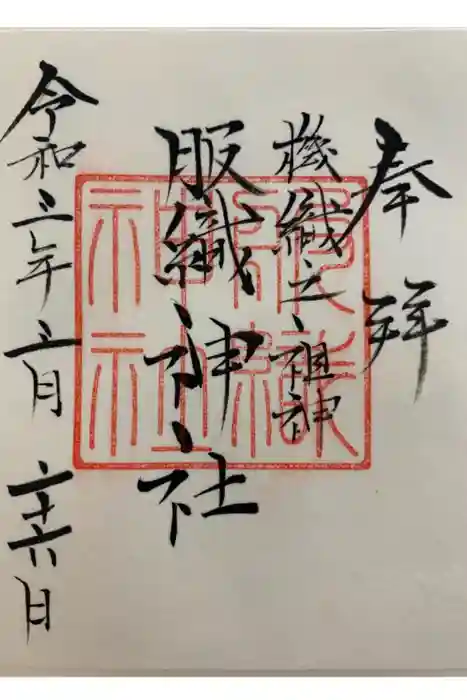 奉拝
機織之祖神
服織神社
令和三年三月二十六日
服織神社